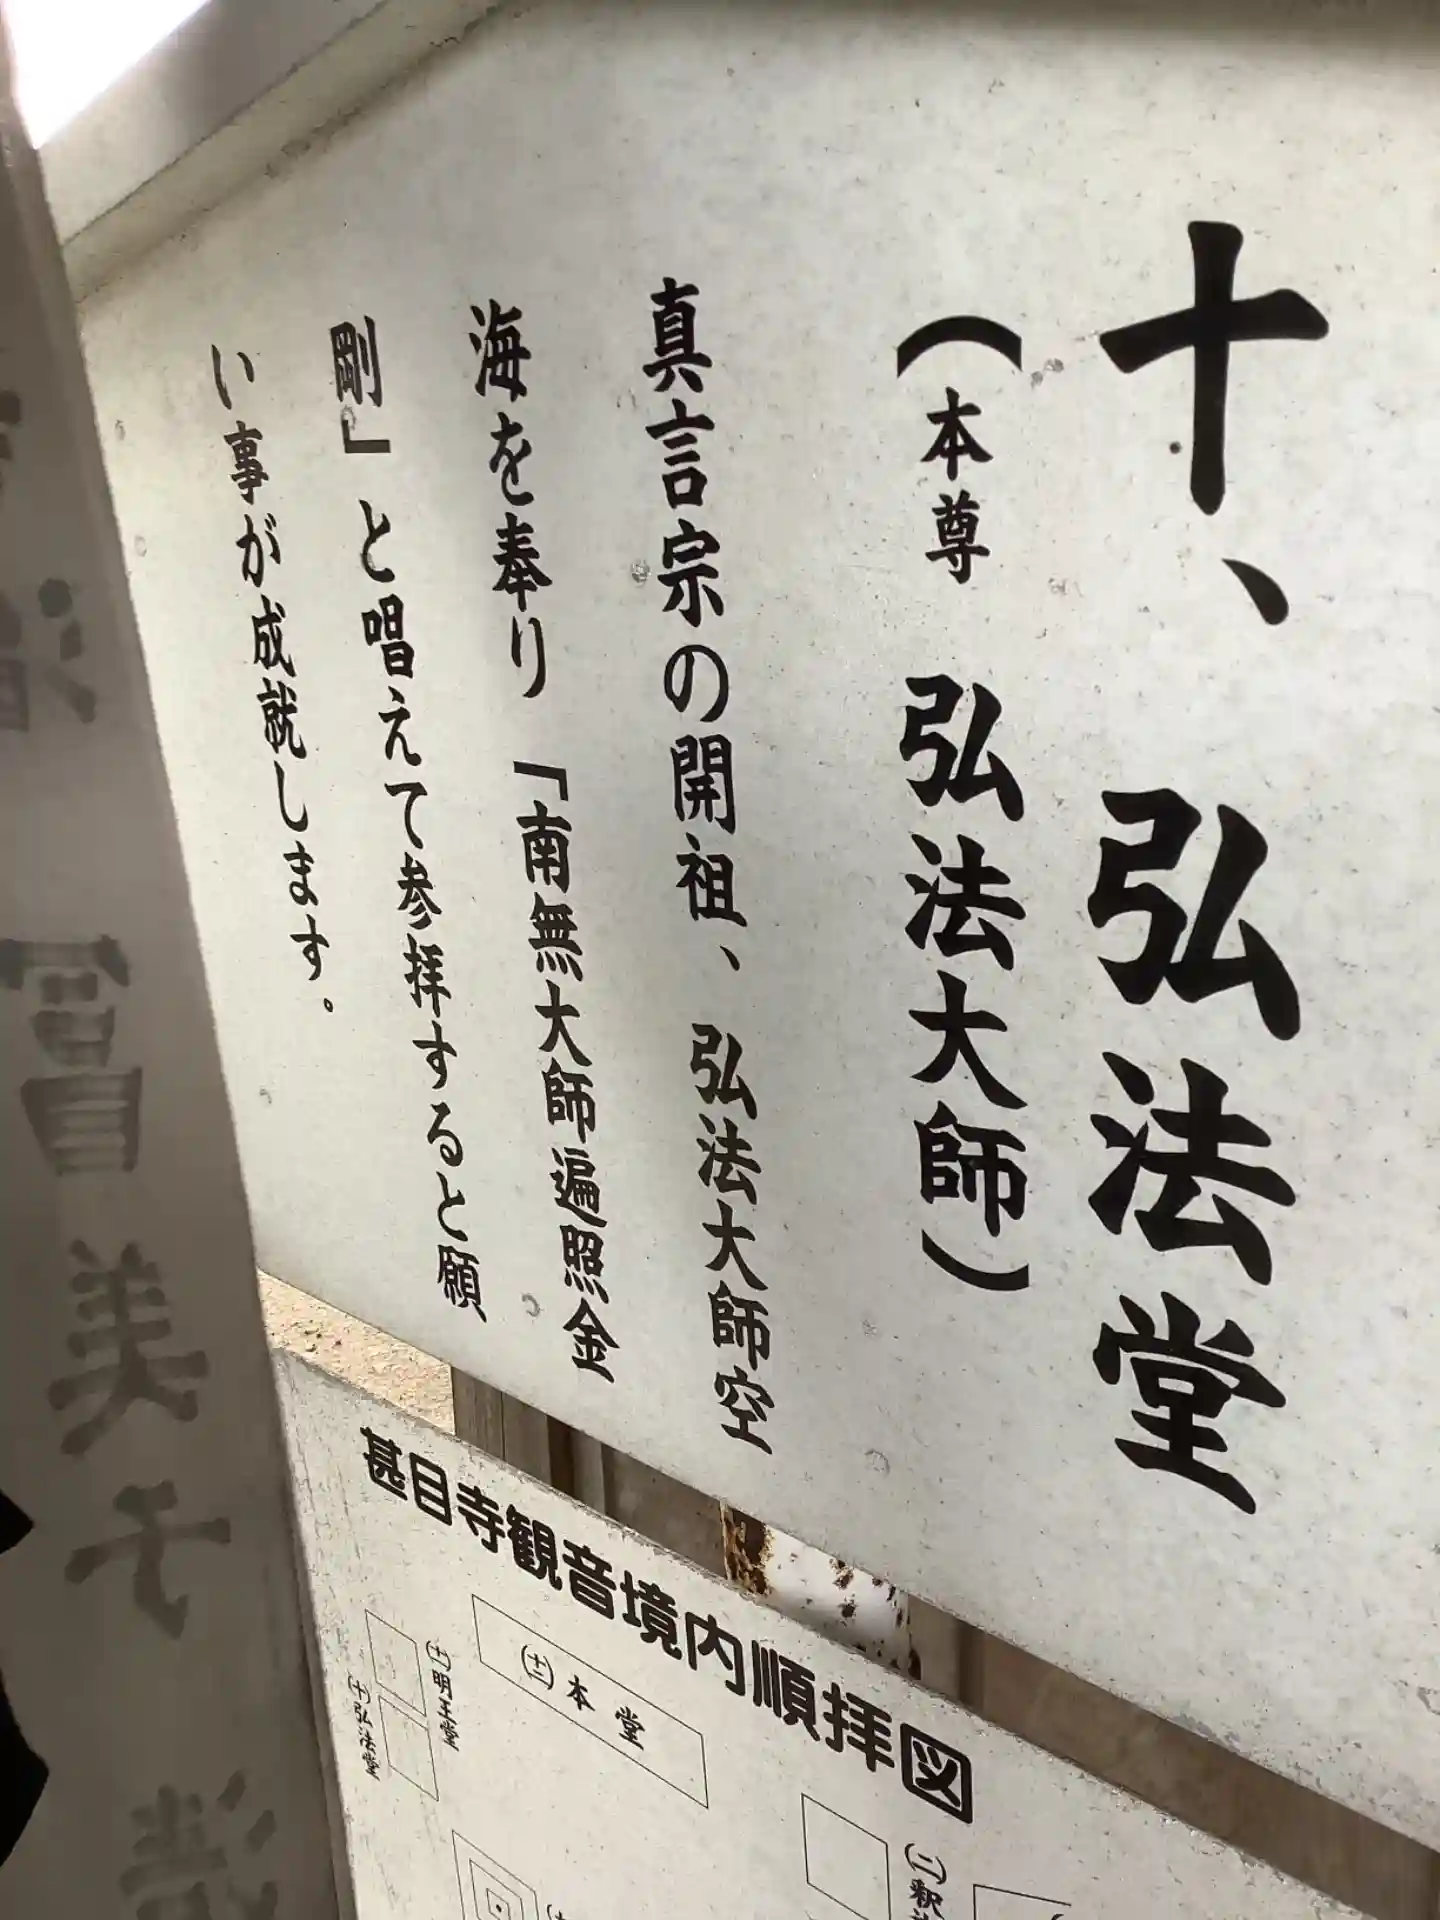 十、弘法堂
（本尊 弘法大師）
真言宗の開祖、弘法大師空
海を奉り「南無大師遍照金
剛」と唱えて参拝すると願
い事が成就します。
甚目寺観音境内順拝図
(十二)本堂
(十一)明王堂
(十)弘法堂
(二)釈
美千